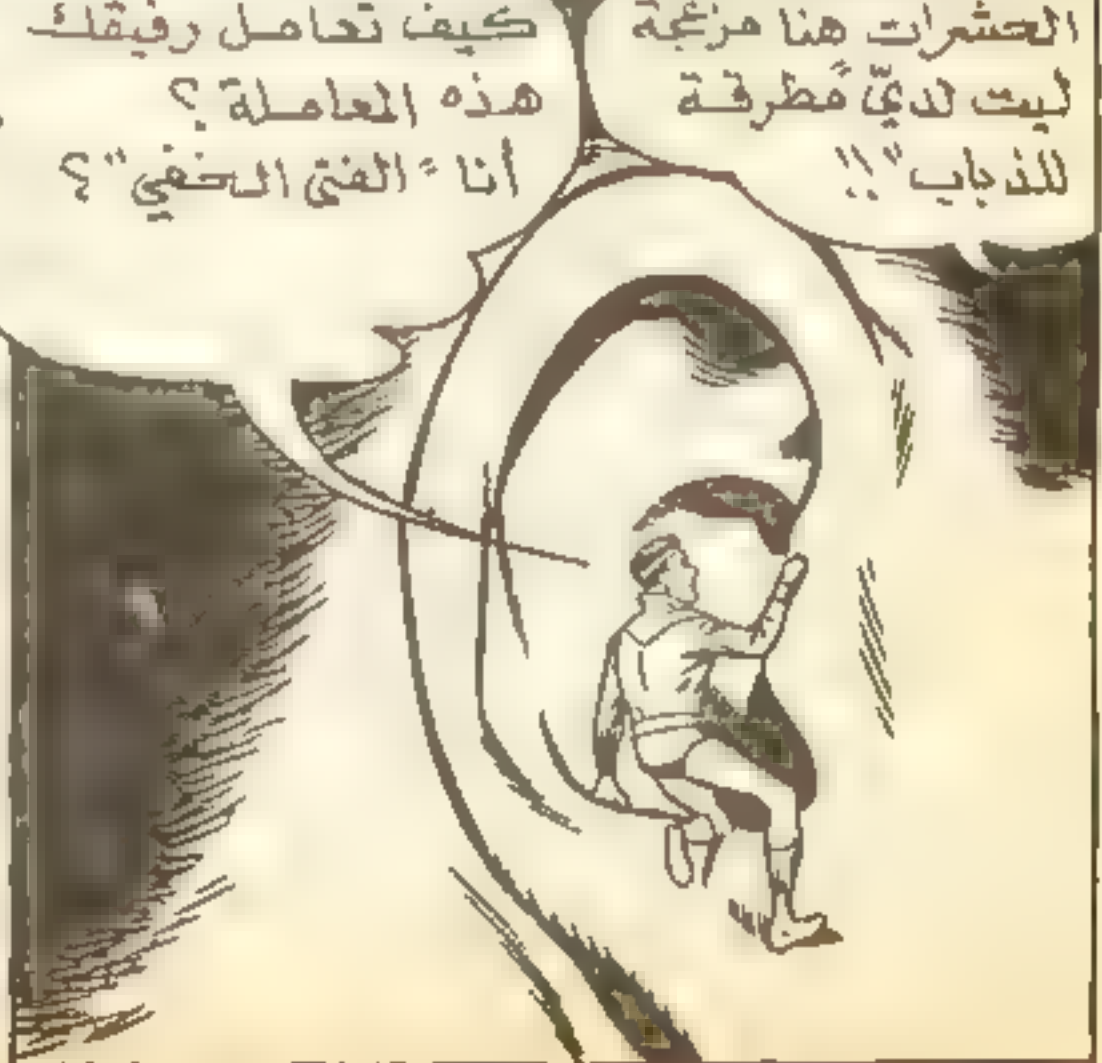 الحشرات هنا مزعجة
ليت لديّ مُطرقة
للذباب"!!
كيف تعامل رفيقك
هذه المعاملة؟
أنا "الفتى الخفي"؟